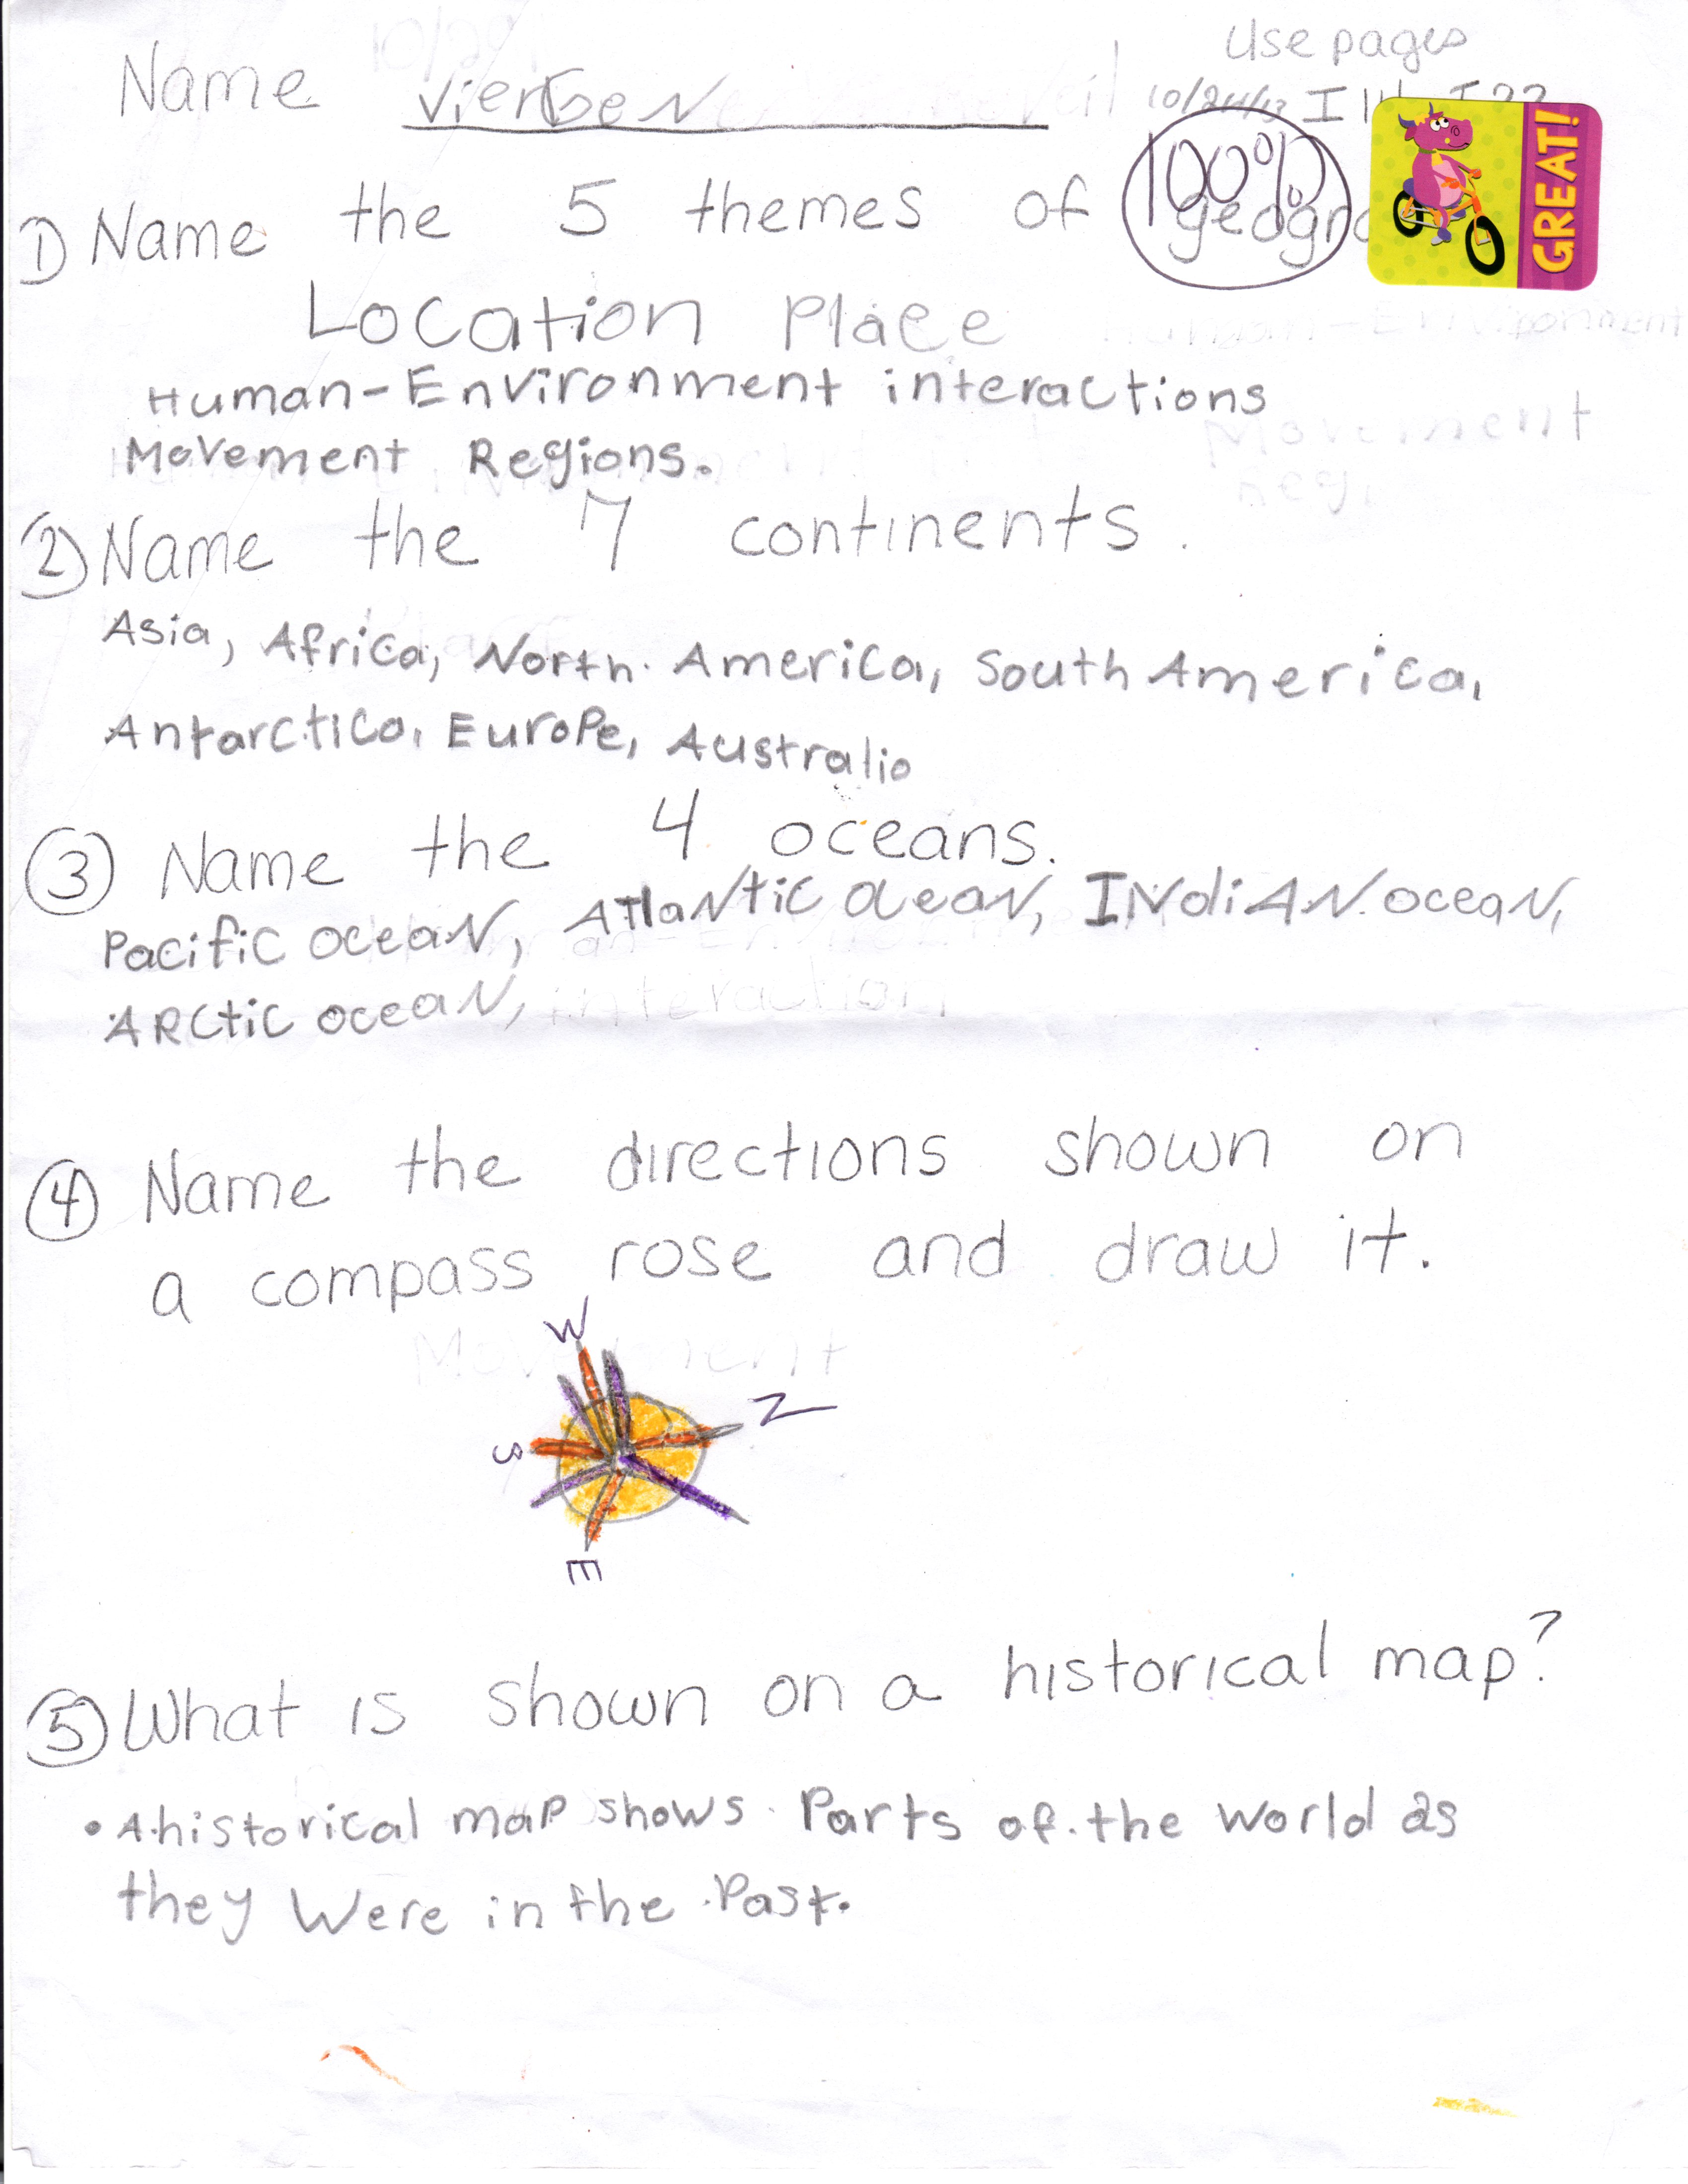 Use pages
Name
10/24/13
100%
GREAT!
1) Name the 5 themes of
Location Place
Human-Environment interactions
Movement Regions.
2) Name the 7 continents.
Asia, Africa, North America, South America,
Antarctica, Europe, Australia
3) Name the 4 oceans.
Pacific ocean, Atlantic ocean, INdiAN ocean,
ARctic ocean,
4) Name the directions shown on
a compass rose and draw it.
W
N
S
E
5) What is shown on a historical map?
• A historical map shows Parts of the World as
they Were in the Past.